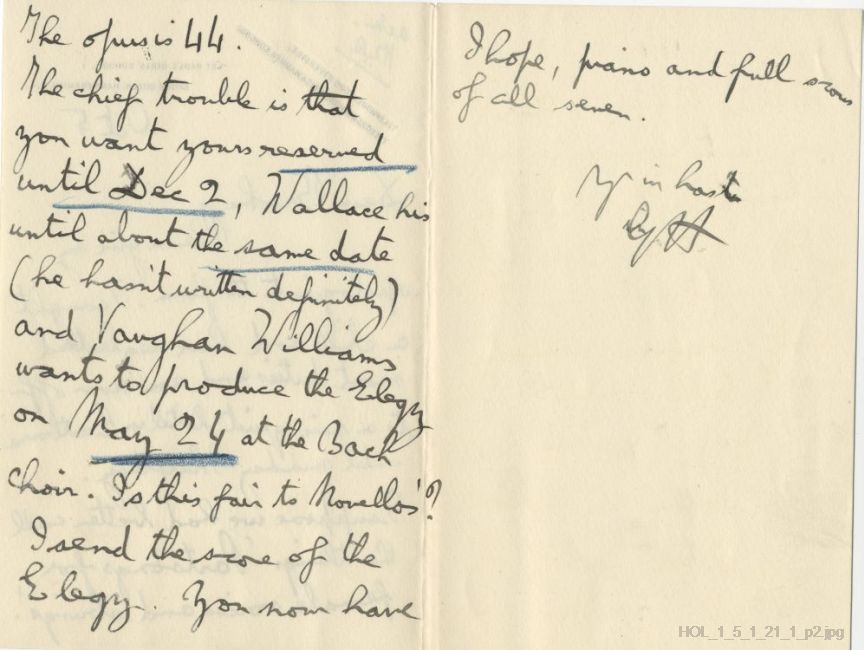 The opus is 44.
The chief trouble is that
you want yours reserved
until Dec 2, Wallace his
until about the same date
(he hasn't written definitely)
and Vaughan Williams
wants to produce the Elegy
on May 24 at the Bach
choir. Is this fair to Novello's?
I send the score of the
Elegy. You now have
I hope, piano and full scores
of all seven.
in haste
HOL_1_5_1_21_1_p2.jpg